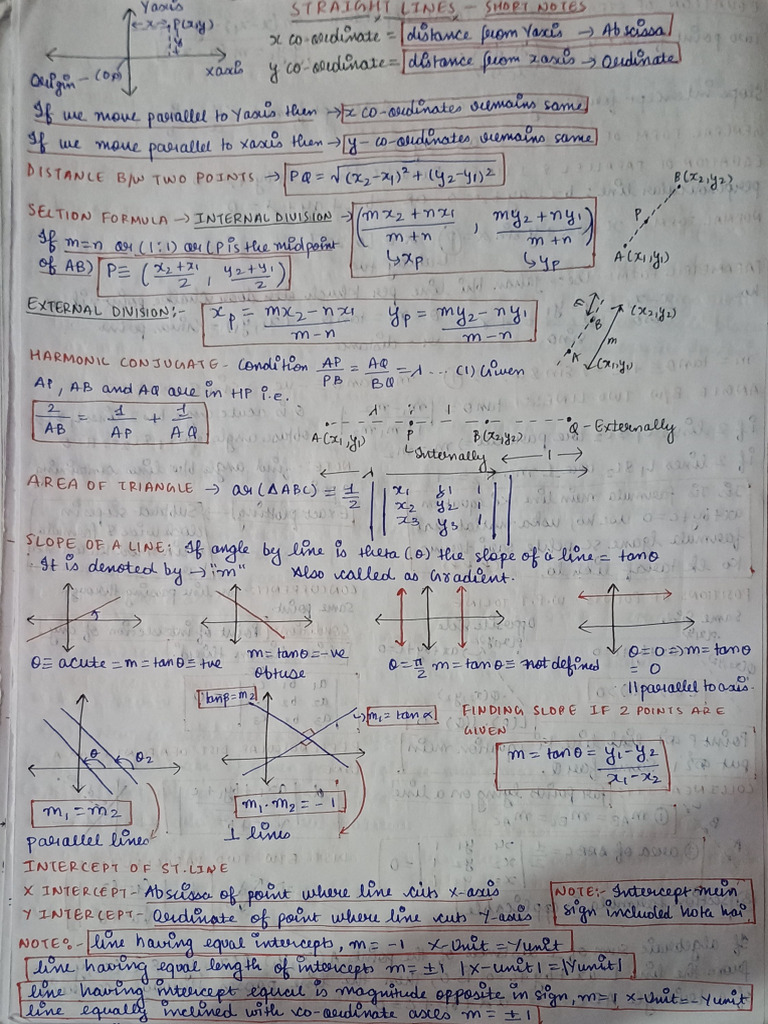 STRAIGHT LINES - SHORT NOTES
Yaxis
P(x,y)
x
y
xaxis
Origin - (0,0)
x co-ordinate = distance from Yaxis → Abscissa
y co-ordinate = distance from xaxis → Ordinate
If we move parallel to Yaxis then → x co-ordinates remains same
If we move parallel to xaxis then → y- co-ordinates remains same
DISTANCE B/W TWO POINTS → PQ = √(x2-x1)² + (y2-y1)²
SECTION FORMULA → INTERNAL DIVISION → ( (mx2+nx1)/(m+n) , (my2+ny1)/(m+n) )
↳xp ↳yp
B(x2,y2)
P
A(x1,y1)
If m=n or (1:1) or (P is the midpoint
of AB) P≡ ( (x2+x1)/2 , (y2+y1)/2 )
EXTERNAL DIVISION:- xp = (mx2-nx1)/(m-n) yp = (my2-ny1)/(m-n)
(x2,y2)
B
m
A
(x1,y1)
HARMONIC CONJUGATE - Condition AP/PB = AQ/BQ = λ ... (1) Given
AP, AB and AQ are in HP i.e.
2/AB = 1/AP + 1/AQ
λ 1
A(x1,y1) P B(x2,y2) Q - Externally
↳Internally
1
λ
AREA OF TRIANGLE → ar(△ABC) = 1/2 || x1 y1 1 ||
x2 y2 1
x3 y3 1
SLOPE OF A LINE: If angle by line is theta (θ) the slope of a line = tanθ
It is denoted by → "m" Also called as Gradient.
θ= acute = m = tanθ = +ve
m = tanθ = -ve
obtuse
θ = π/2 m = tanθ = not defined
θ = 0 => m = tanθ
= 0
|| parallel to axis.
θ
θ2
m1 = m2
parallel lines
tanβ = m2
↳ m1 = tanα
m1 . m2 = -1
⊥ lines
FINDING SLOPE IF 2 POINTS ARE
GIVEN
m = tanθ = (y1-y2)/(x1-x2)
INTERCEPT OF ST. LINE
X INTERCEPT - Abscissa of point where line cuts X-axis
Y INTERCEPT - Ordinate of point where line cuts Y-axis
NOTE:- Intercept mein
sign included hota hai.
NOTE:- line having equal intercepts, m = -1 X-Unit = Yunit
line having equal length of intercepts m = ±1 |X-unit| = |Yunit|
line having intercept equal is magnitude opposite in sign, m=1 X-Unit = -Yunit
line equally inclined with co-ordinate axes m = ±1